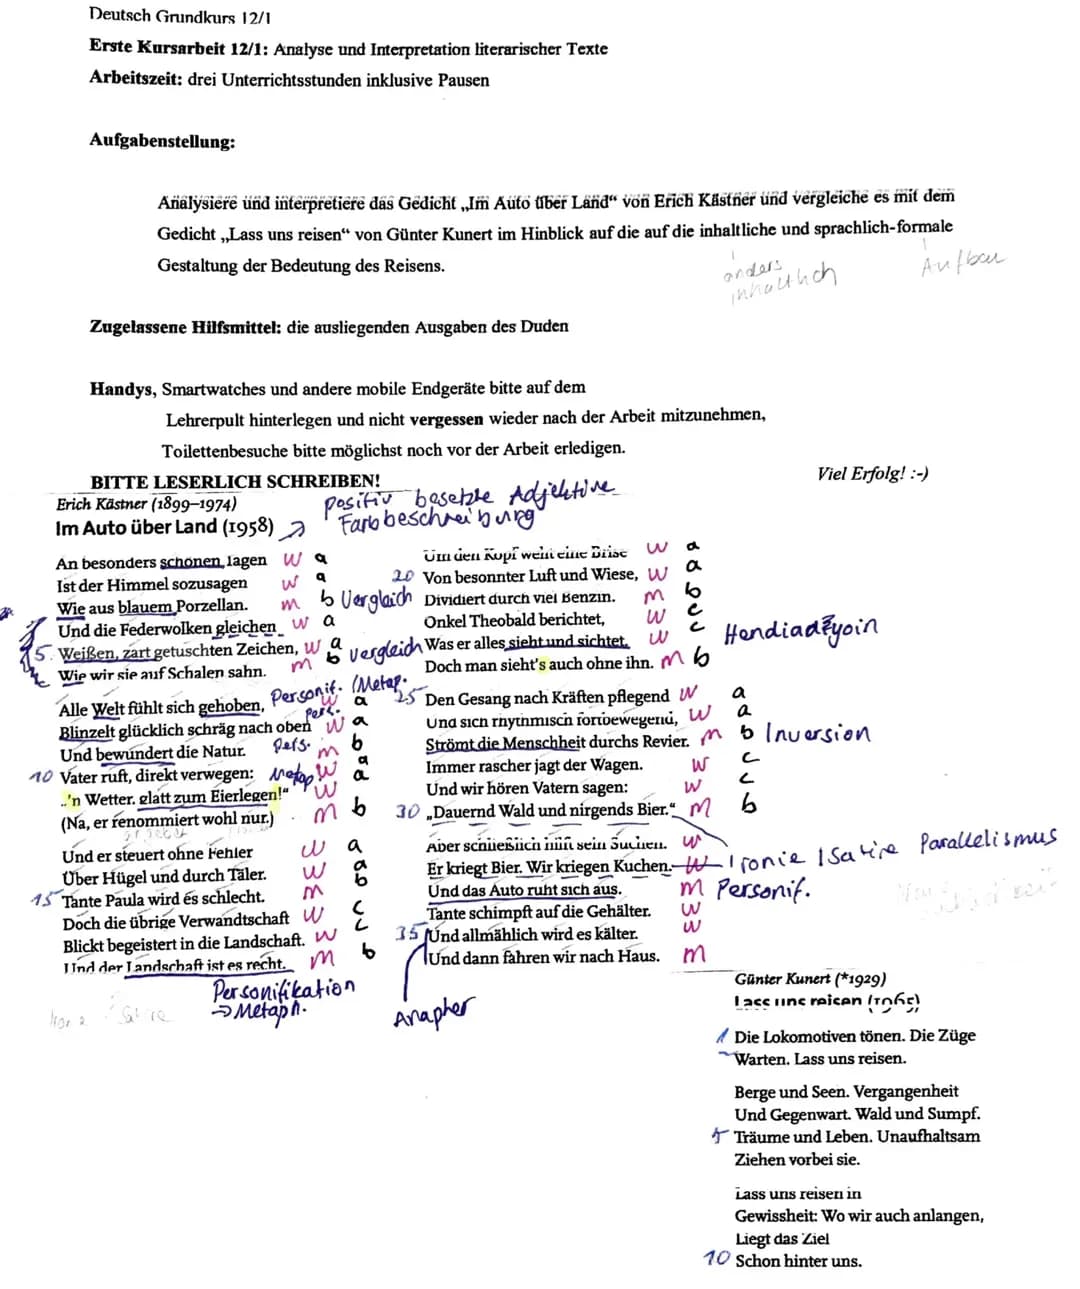 Deutsch Grundkurs 12/1
Erste Kursarbeit 12/1: Analyse und Interpretation literarischer Texte
Arbeitszeit: drei Unterrichtsstunden inklusive Pausen
Aufgabenstellung:
Analysiere und interpretiere das Gedicht „Im Auto über Land“ von Erich Kästner und vergleiche es mit dem
Gedicht „Lass uns reisen“ von Günter Kunert im Hinblick auf die auf die inhaltliche und sprachlich-formale
Gestaltung der Bedeutung des Reisens.
anders
inhaltlich
Aufbau
Zugelassene Hilfsmittel: die ausliegenden Ausgaben des Duden
Handys, Smartwatches und andere mobile Endgeräte bitte auf dem
Lehrerpult hinterlegen und nicht vergessen wieder nach der Arbeit mitzunehmen,
Toilettenbesuche bitte möglichst noch vor der Arbeit erledigen.
BITTE LESERLICH SCHREIBEN!
Viel Erfolg! :-)
Erich Kästner (1899–1974)
Im Auto über Land (1958)
positiv besetzte Adjektive
Farbbeschreibung
An besonders schönen Tagen w a
Ist der Himmel sozusagen w a
Wie aus blauem Porzellan. m b Vergleich
Und die Federwolken gleichen w a
5. Weißen, zart getuschten Zeichen, w a
Wie wir sie auf Schalen sahn. m b Vergleich
Alle Welt fühlt sich gehoben, Personif. (Metap. w a
Blinzelt glücklich schräg nach oben Pers. w a
Und bewundert die Natur. Pers. m b
10 Vater ruft, direkt verwegen: Metap w a
„'n Wetter, glatt zum Eierlegen!“ w a
(Na, er renommiert wohl nur.) m b
Und er steuert ohne Fehler w a
Über Hügel und durch Täler. w a
15 Tante Paula wird es schlecht. m b
Doch die übrige Verwandtschaft w c
Blickt begeistert in die Landschaft. w c
Und der Landschaft ist es recht. m b
Personifikation
→ Metaph.
Um den Kopf weht eine Brise w a
20 Von besonnter Luft und Wiese, w a
Dividiert durch viel Benzin. m b
Onkel Theobald berichtet, w c
Was er alles sieht und sichtet. w c Hendiadyoin
Doch man sieht's auch ohne ihn. m b
25 Den Gesang nach Kräften pflegend w a
Und sich rhythmisch fortbewegend, w a
Strömt die Menschheit durchs Revier. m b Inversion
Immer rascher jagt der Wagen. w c
Und wir hören Vatern sagen: w c
30 „Dauernd Wald und nirgends Bier.“ m b
Aber schließlich hilft sein Suchen. w
Er kriegt Bier. Wir kriegen Kuchen. w Ironie / Satire Parallelismus
Und das Auto ruht sich aus. m Personif.
Tante schimpft auf die Gehälter. w
35 Und allmählich wird es kälter. w
Und dann fahren wir nach Haus. m
Anapher
Günter Kunert (*1929)
Lass uns reisen (1965)
1 Die Lokomotiven tönen. Die Züge
Warten. Lass uns reisen.
Berge und Seen. Vergangenheit
Und Gegenwart. Wald und Sumpf.
5 Träume und Leben. Unaufhaltsam
Ziehen vorbei sie.
Lass uns reisen in
Gewissheit: Wo wir auch anlangen,
Liegt das Ziel
10 Schon hinter uns.